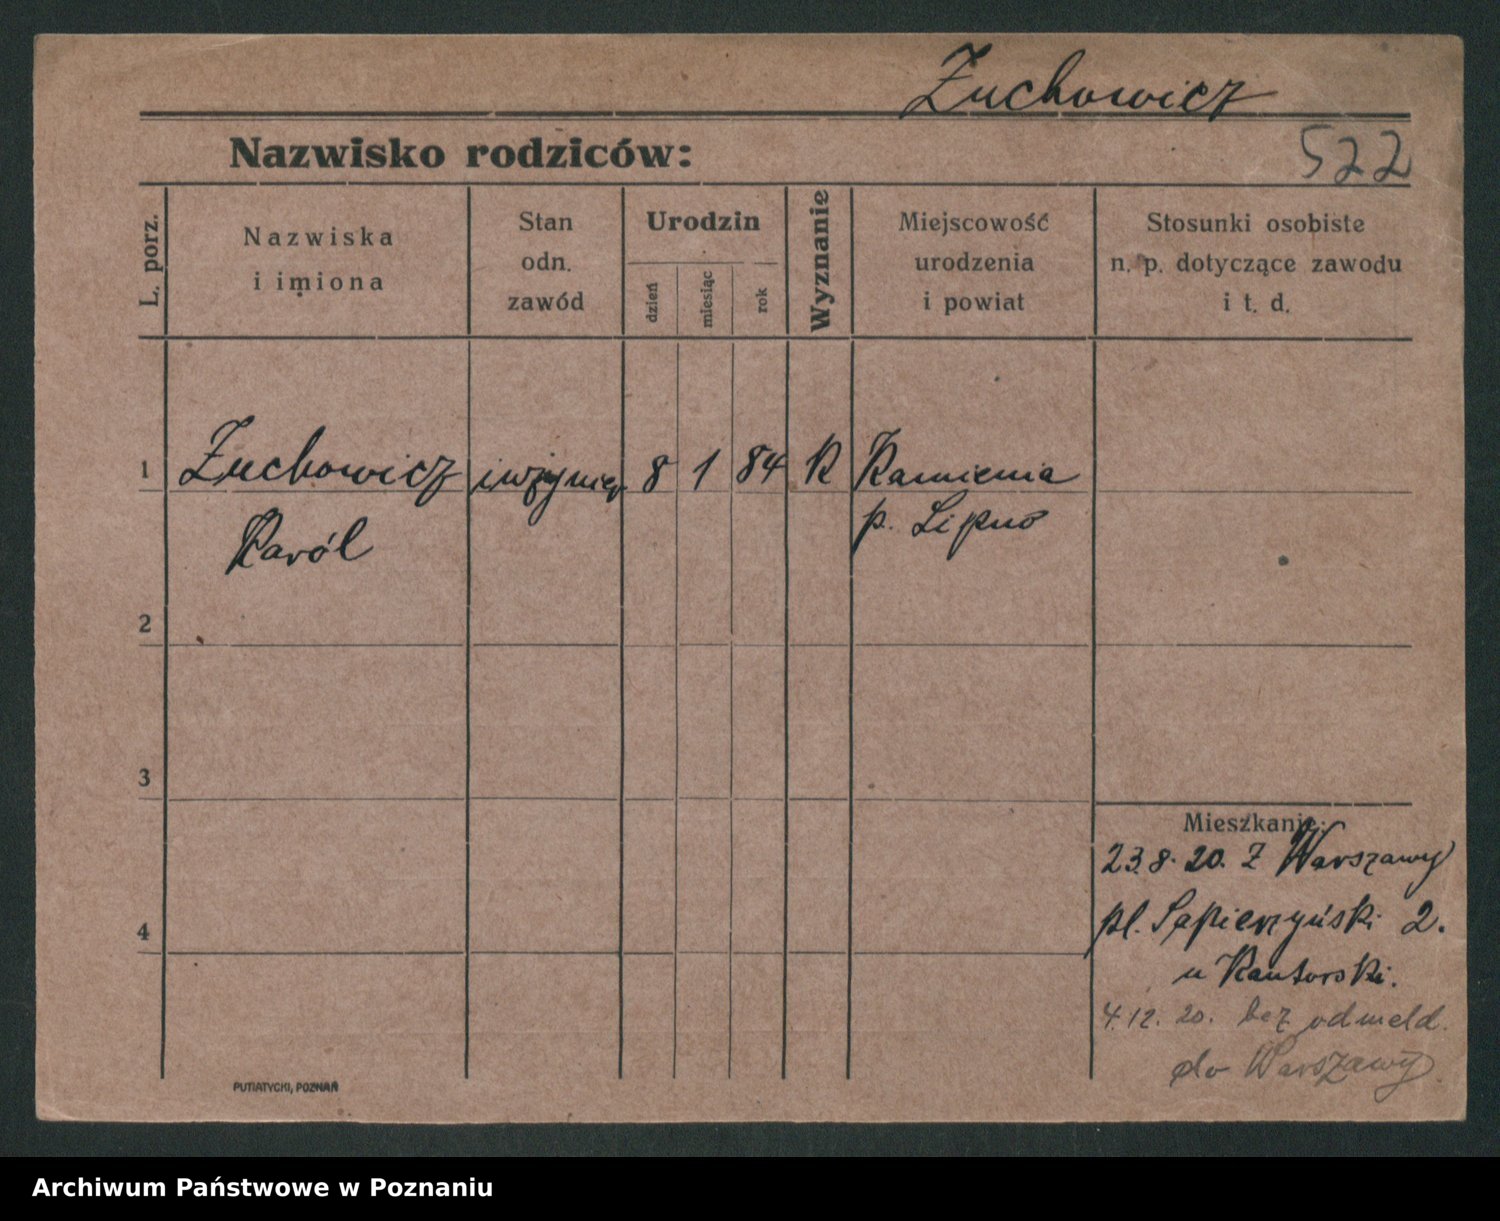 Żuchowicz
Nazwisko rodziców:
522
L. porz.
Nazwiska
i imiona
Stan
odn.
zawód
Urodzin
dzień
miesiąc
rok
Wyznanie
Miejscowość
urodzenia
i powiat
Stosunki osobiste
n. p. dotyczące zawodu
i t. d.
1 Żuchowicz inżynier 8 1 84 K Kamienia
Karól p. Lipno
2
3
4
Mieszkanie:
23.8.20. Z Warszawy
pl. Sapierzyński 2.
u Kantorski.
4.12.20. bez odmeld.
do Warszawy
PUTIATYCKI, POZNAŃ
Archiwum Państwowe w Poznaniu